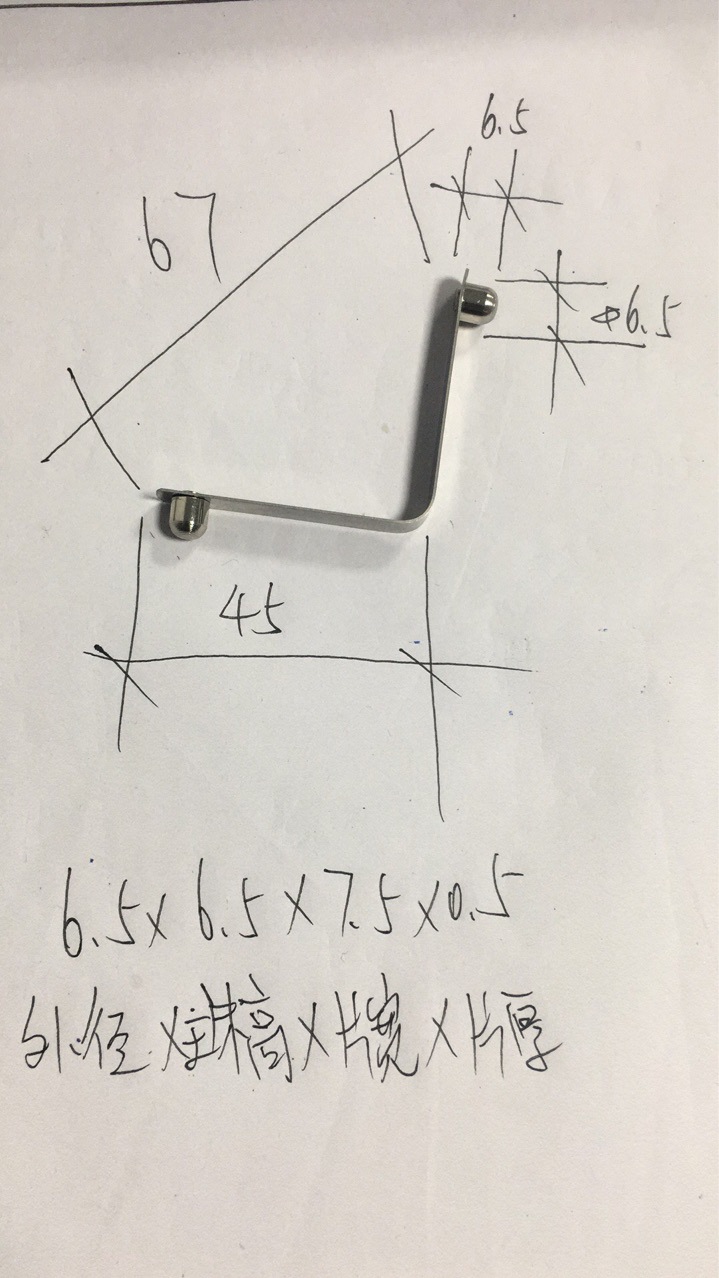 6.5
67
Φ6.5
45
6.5×6.5×7.5×0.5
外径×柱高×片宽×片厚